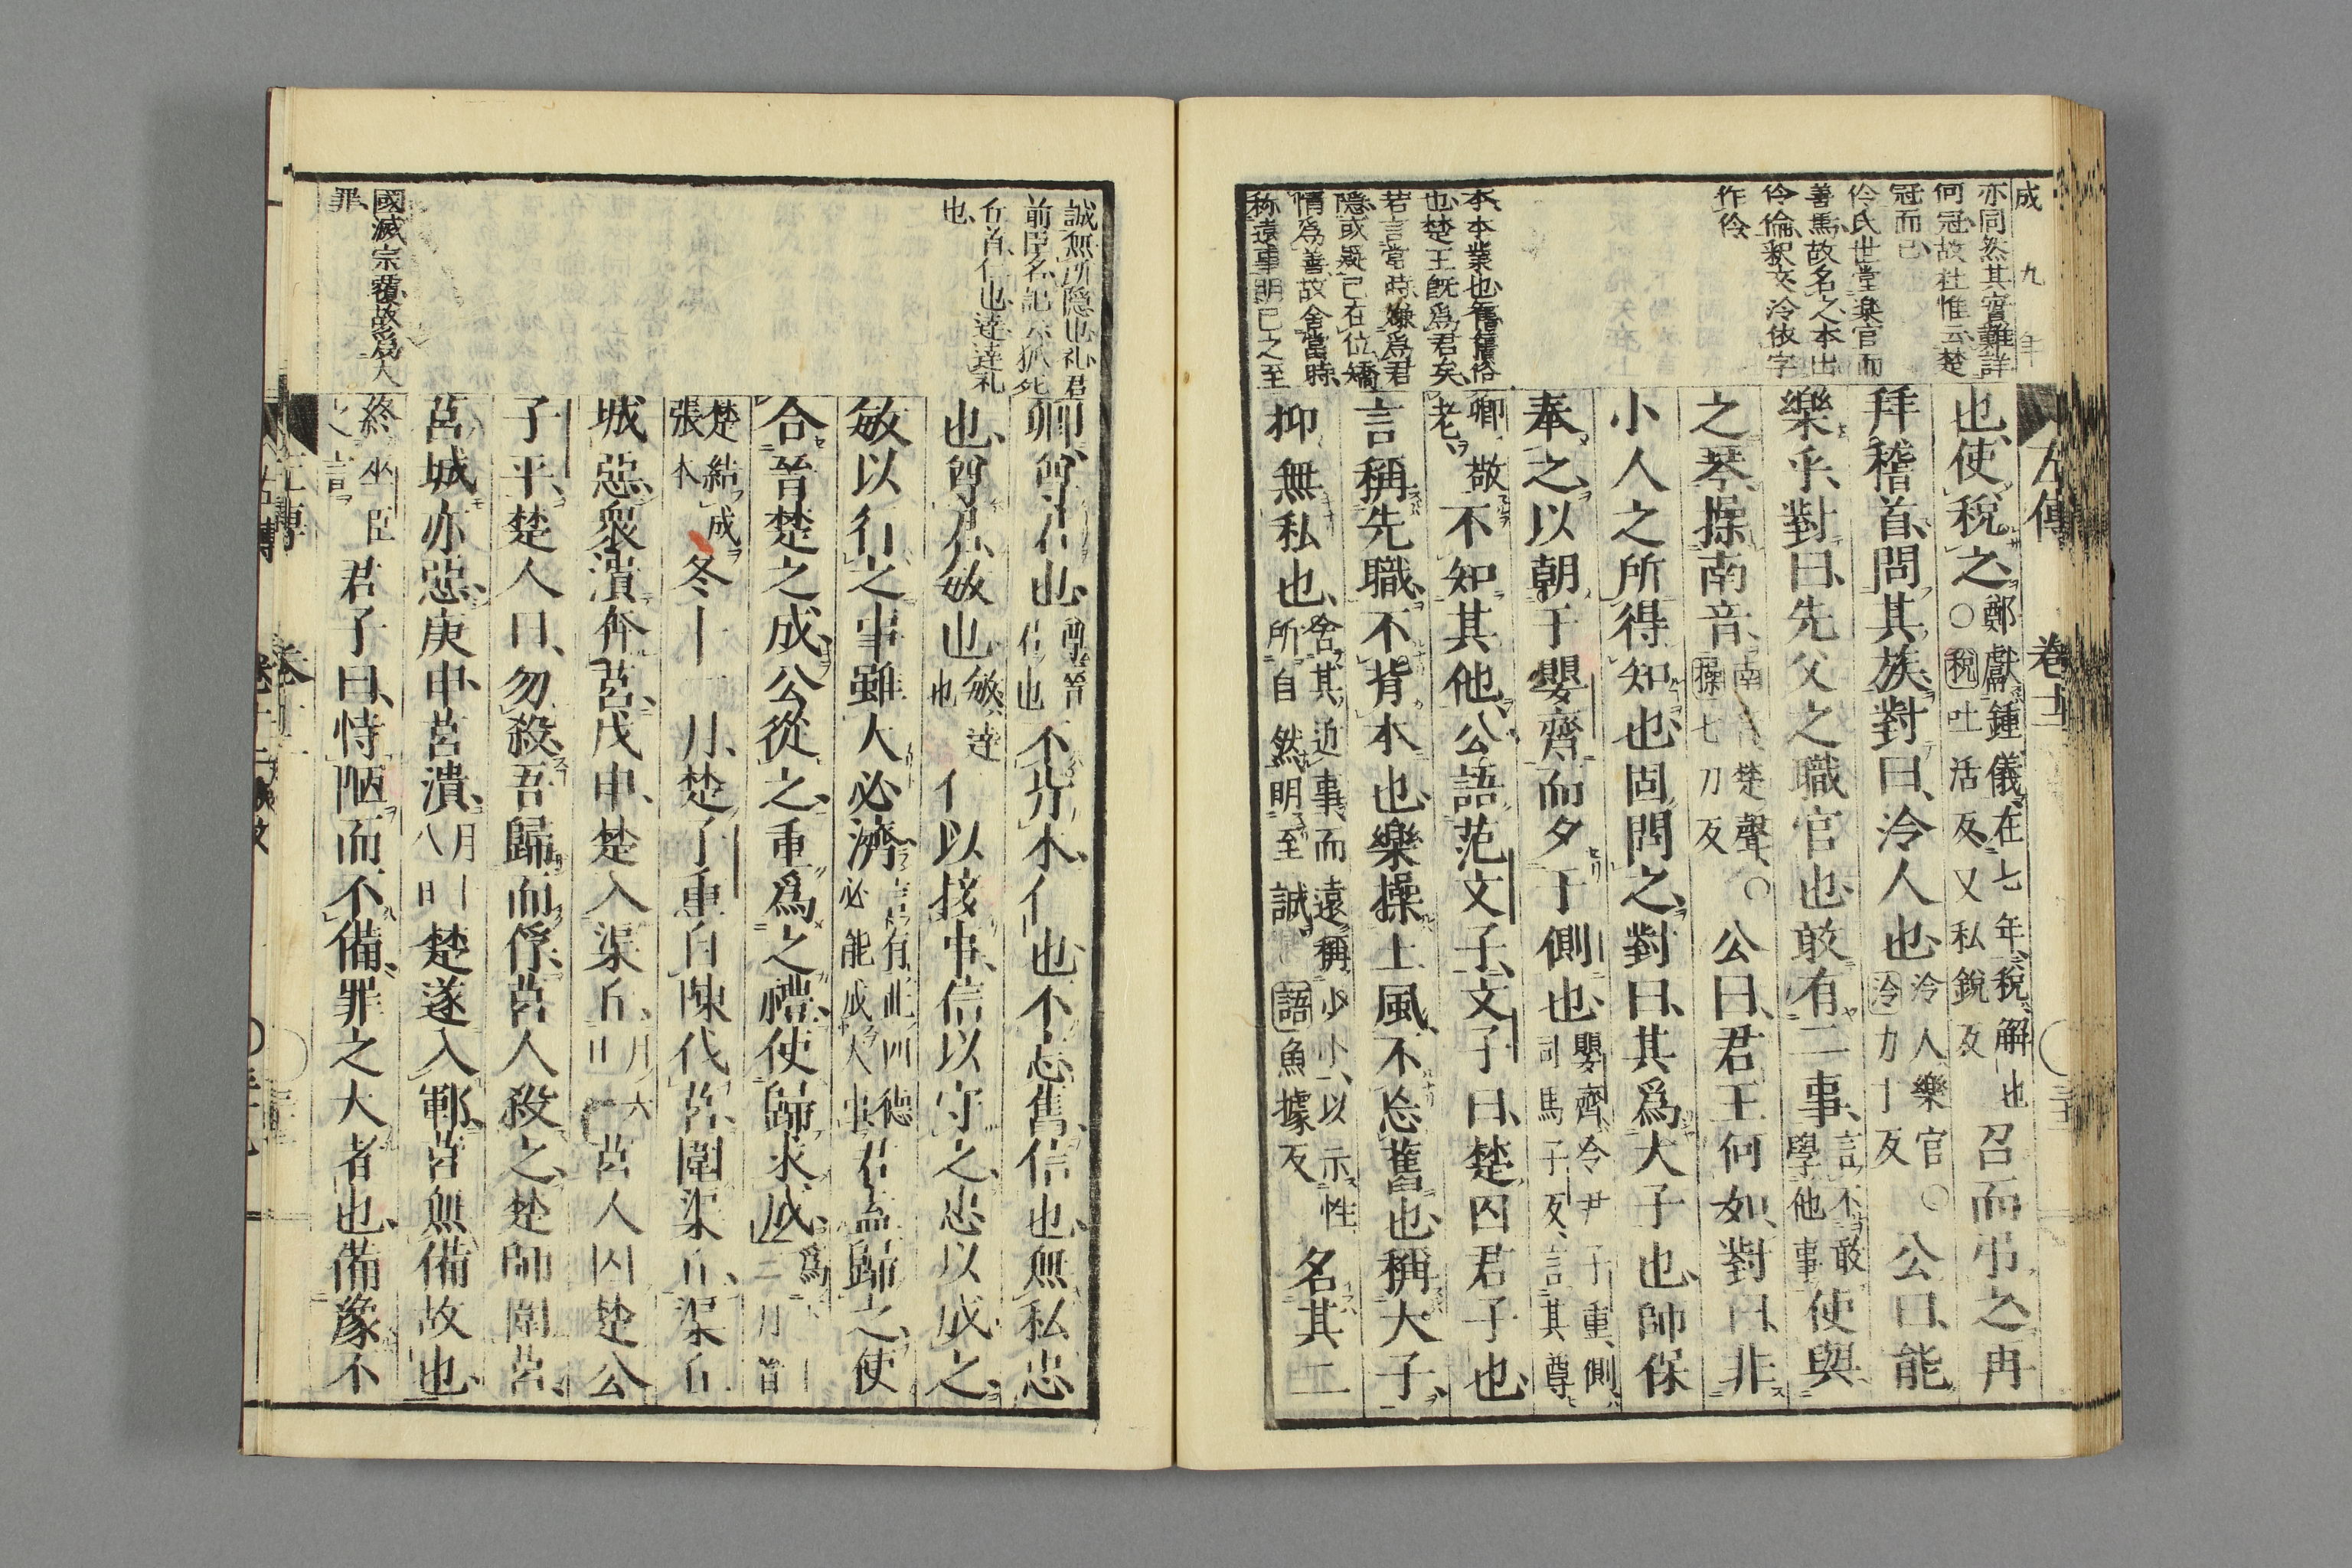 成九年
亦同然其實難詳
何冠故社惟云楚
冠而已
伶氏世堂楽官而
善馬故名之本出
伶倫釈文泠依字
作伶
本本業也舊舊俗
也楚王既為君矣
若言當時嫌為君
隠或疑已在位矯
情為善故舍當時
称遠事明已之至
左傳 卷十二
也使税之鄭獻鍾儀在七年税解也○税吐活反又私銳反召而弔之再
拜稽首問其族對曰泠人也泠人樂官泠力丁反○公曰能
樂乎對曰先父之職官也敢有二事言不敢學他事使與
之琴操南音南音楚聲操七刀反○公曰君王何如對曰非
小人之所得知也固問之對曰其爲大子也師保
奉之以朝于嬰齊而夕于側也嬰齊令尹子重側司馬子反言其尊
卿敬老不知其他公語范文子文子曰楚囚君子也
言稱先職不背本也樂操土風不忘舊也稱大子
抑無私也舍其近事而遠稱少小以示性所自然明至誠語魚據反名其二
誠無所隠也礼君
前臣名記云狐死
丘首仁也達達礼
也
國滅宗覆故爲大
罪
卿尊君也尊晉君也不背本仁也不忘舊信也無私忠
也尊君敏也敏達也仁以接事信以守之忠以成之
敏以行之事雖大必濟言有此四德必能成大事君盍歸之使
合晉楚之成公從之重爲之禮使歸求成爲十二月晉
楚結成張本冬十一月楚子重自陳伐莒圍渠丘渠丘
城惡衆潰奔莒戊申楚入渠丘月六日莒人囚楚公
子平楚人曰勿殺吾歸而俘莒人殺之楚師圍莒
莒城亦惡庚申莒潰月十八日楚遂入鄆莒無備故也
終巫臣之言君子曰恃陋而不備罪之大者也備豫不